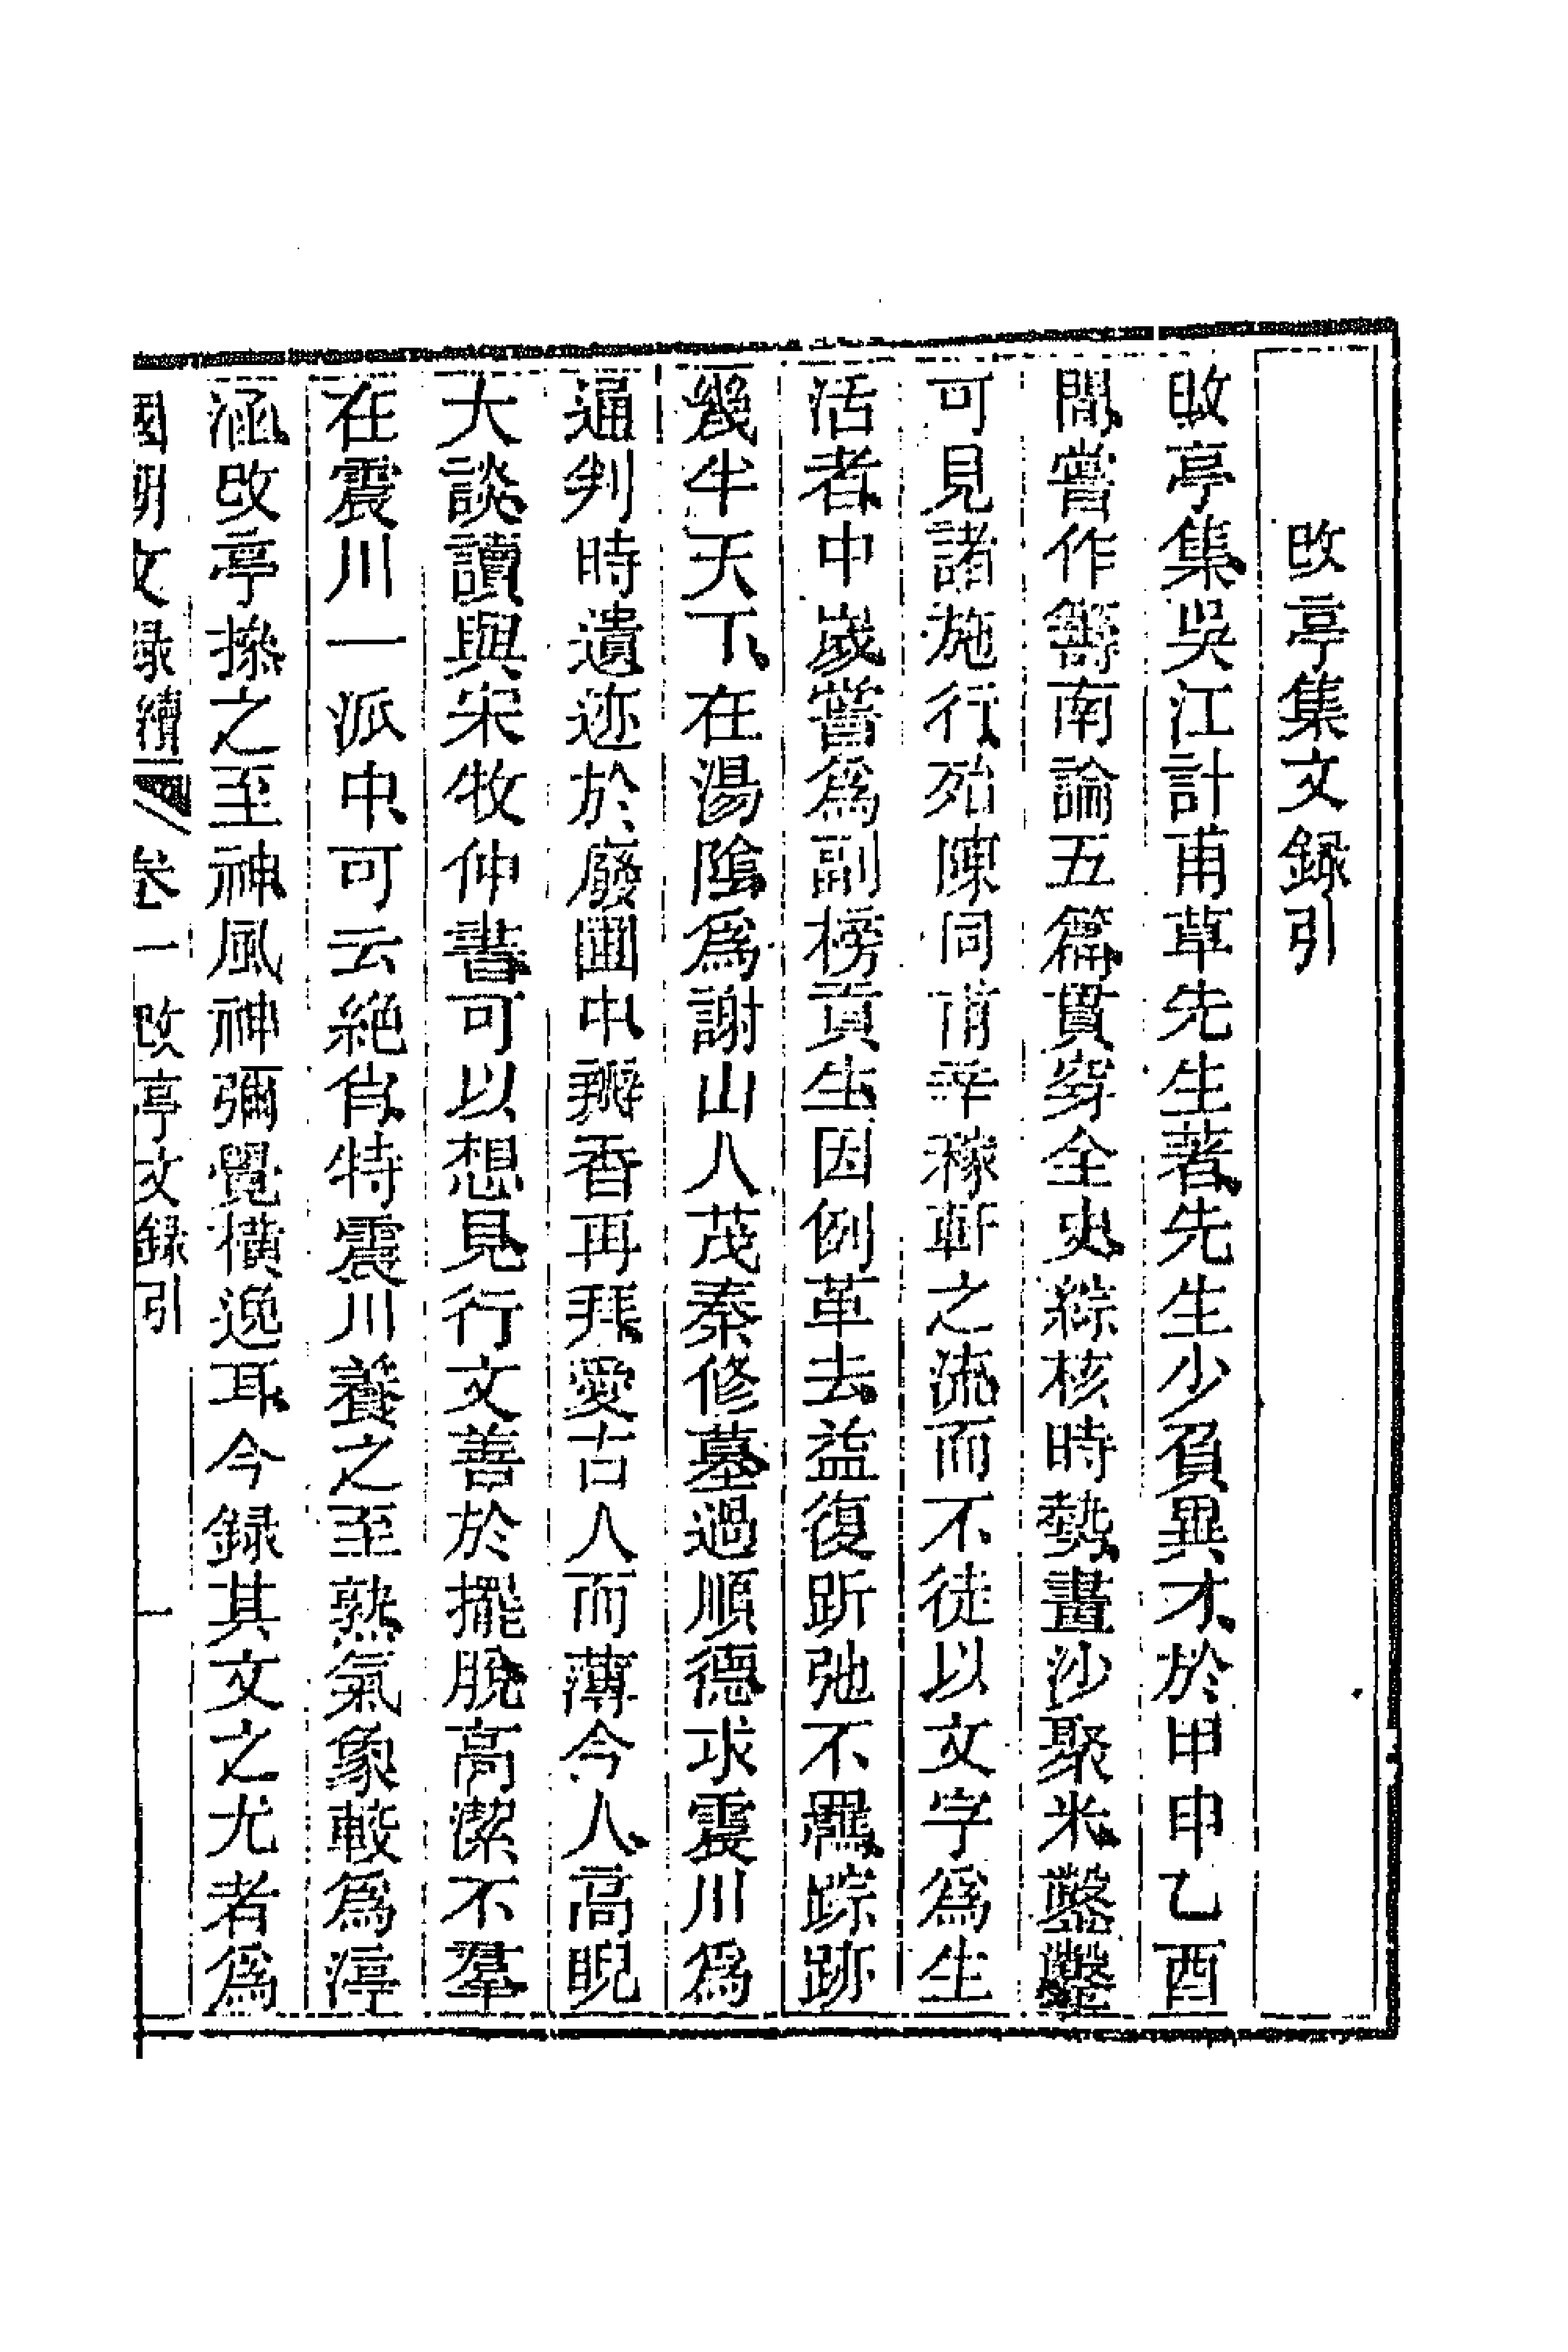 改亭集文録引
改亭集吳江計甫草先生著先生少負異才於甲申乙酉
間嘗作籌南論五篇貫穿全史綜核時勢畫沙聚米鑿鑿
可見諸施行殆陳同甫辛稼軒之流而不徒以文字爲生
活者中歲嘗爲副榜貢生因例革去益復跅弛不羈踪跡
幾半天下在湯陰爲謝山人茂秦修墓過順德求震川爲
通判時遺迹於廢圃中瓣香再拜愛古人而薄今人高睨
大談讀與宋牧仲書可以想見行文善於擺脫高潔不羣
在震川一派中可云絶肖特震川養之至熟氣象較爲渟
涵改亭操之至神風神彌覺橫逸耳今録其文之尤者爲
國朝文録續編卷一 改亭文録引 一